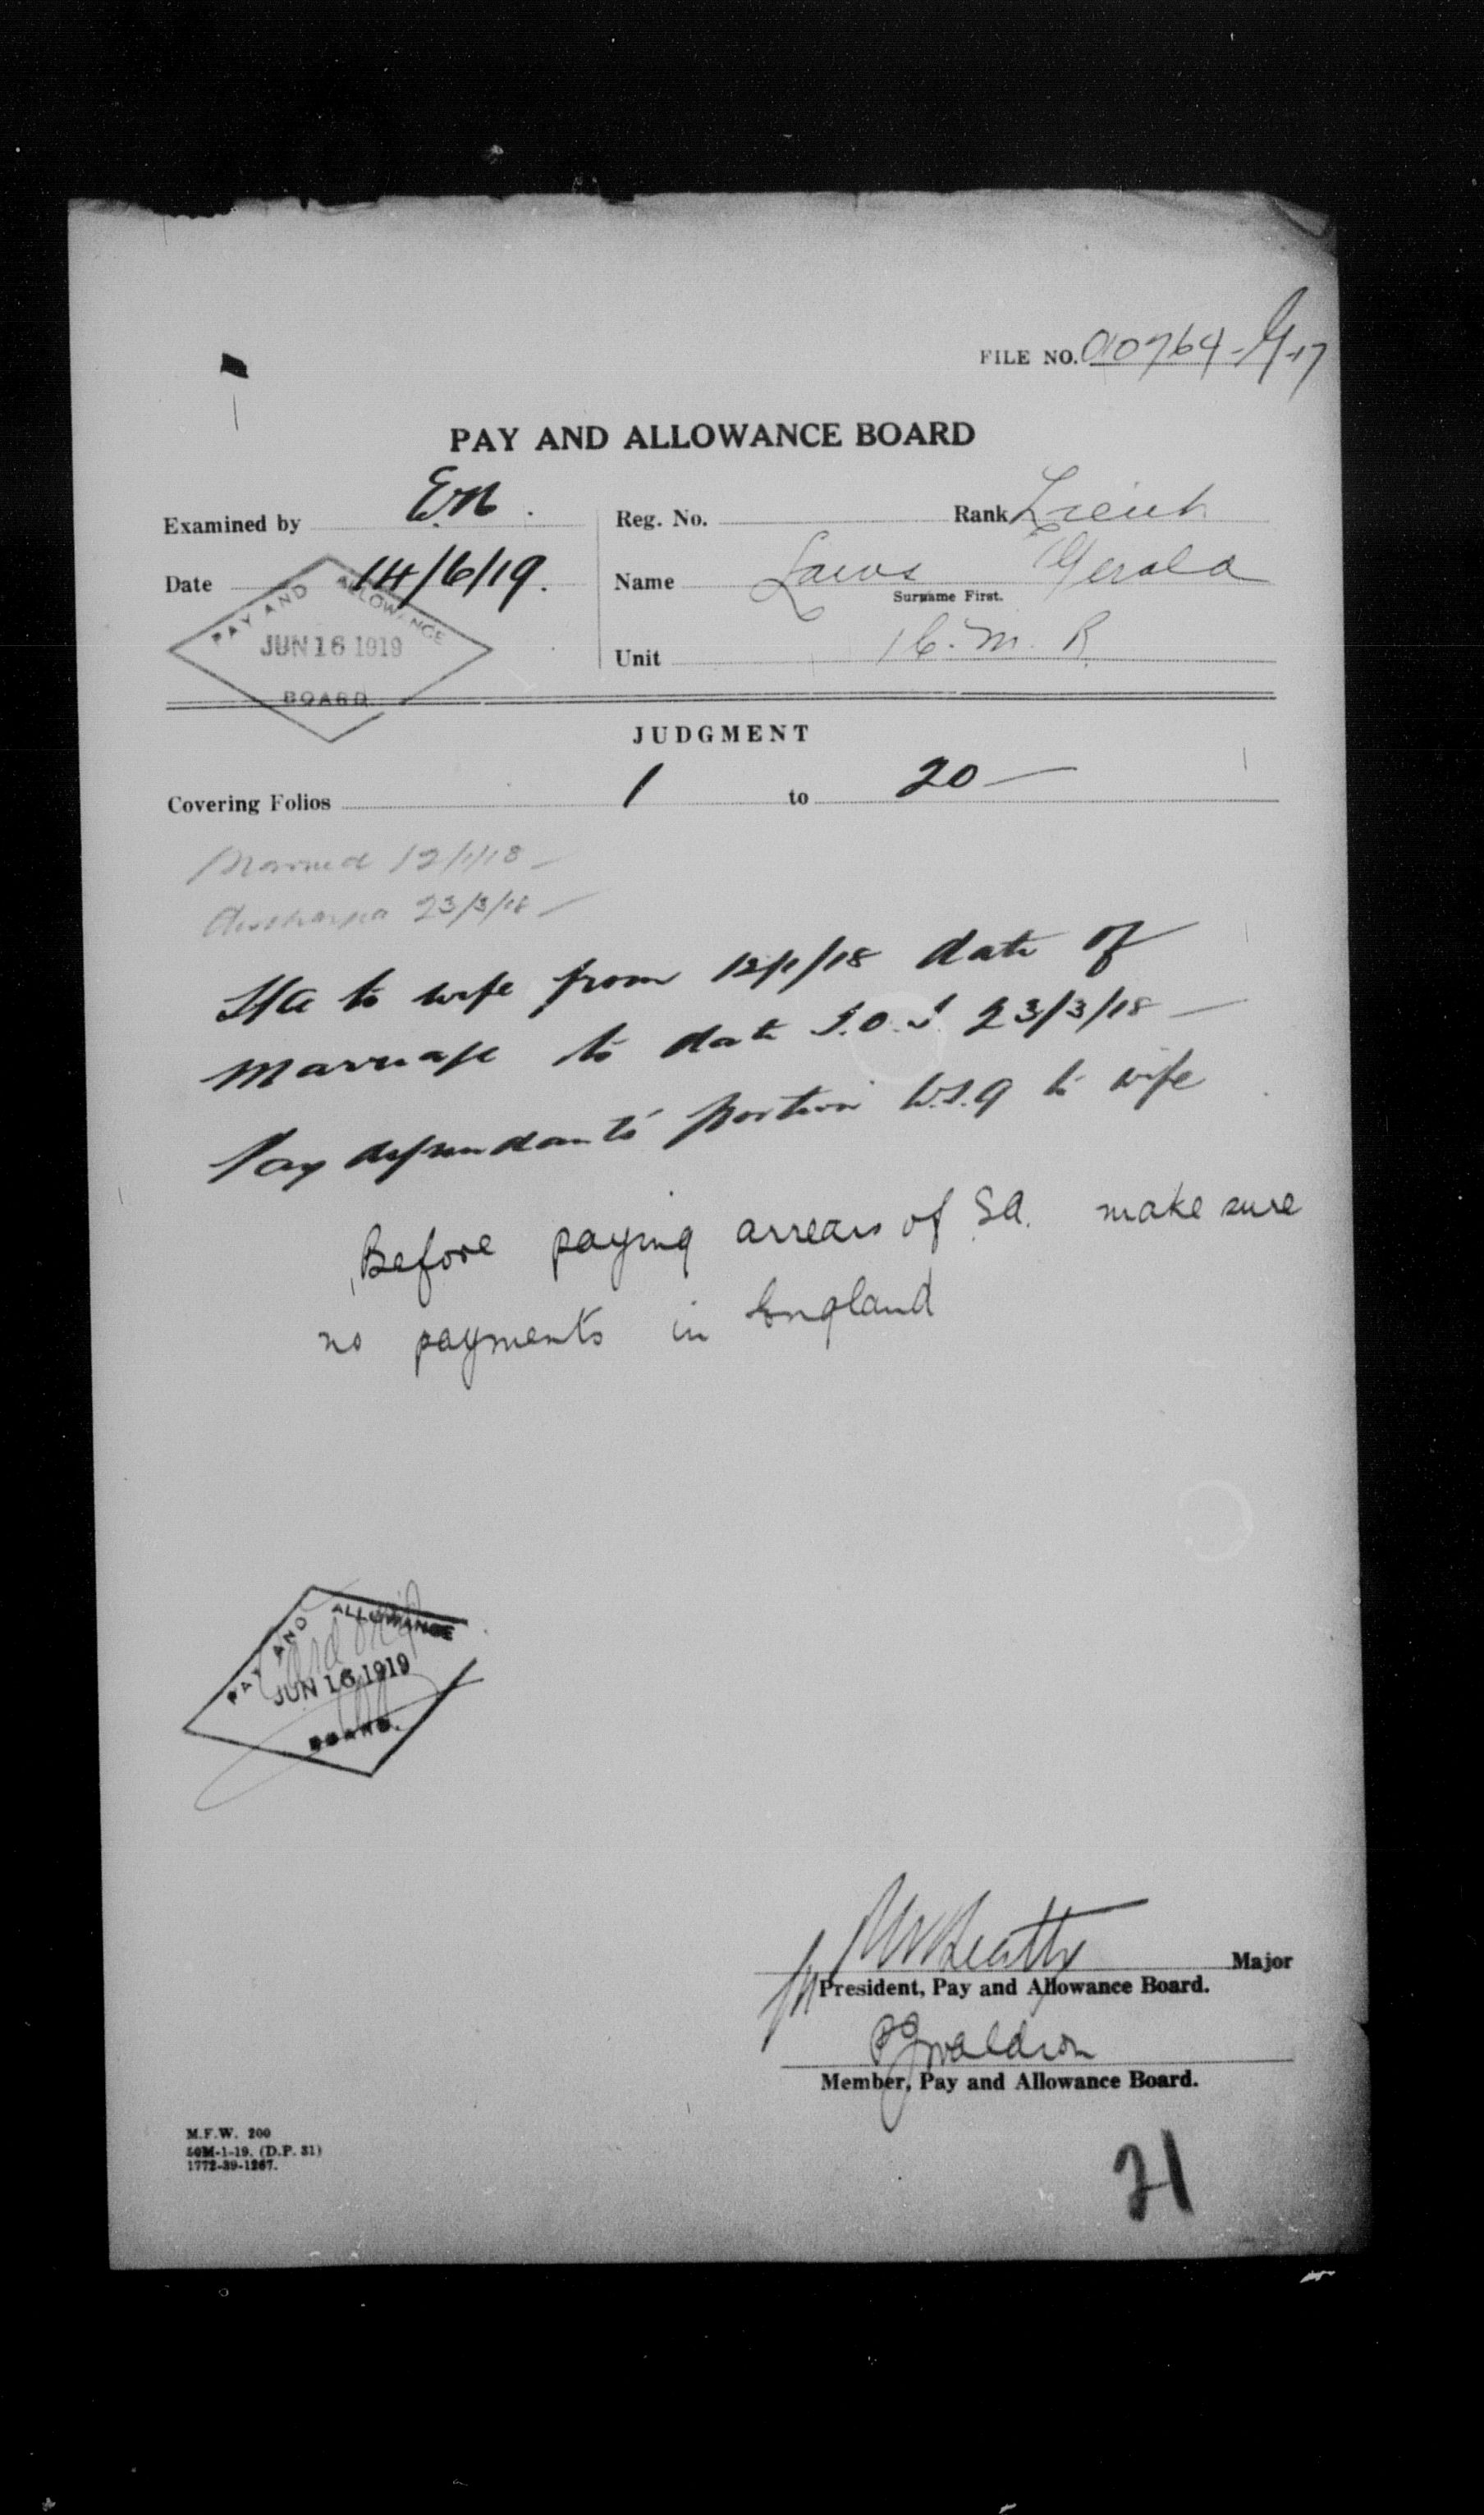 FILE NO. 010764-G-17
PAY AND ALLOWANCE BOARD
Examined by
Reg. No. Rank Lieut
Date 14/6/19.
Name Laws Gerald
Surname First.
PAY AND ALLOWANCE
JUN 16 1919
BOARD
Unit 1 C. M. R.
JUDGMENT
Covering Folios 1 to 20 —
Married 12/1/18 —
23/3/18 —
to wife from 12/1/18 date of
Marriage to date S.O.S 23/3/18 —
Pay dependants' portion W.S.G to wife
Before paying arrears of SA. make sure
no payments in England
PAY AND ALLOWANCE
JUN 16 1919
BOARD.
Beatty Major
President, Pay and Allowance Board.
Waldron
Member, Pay and Allowance Board.
M.F.W. 200
50M-1-19. (D.P. 31)
1772-39-1267.
21